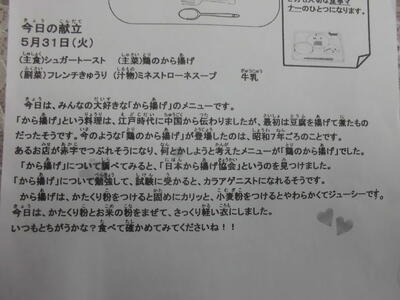 今日の献立
5月31日(火)
(主食)シュガートースト (主菜)鶏のから揚げ
(副菜)フレンチきゅうり (汁物)ミネストローネスープ 牛乳
ナーのひとつになります。
今日は、みんなの大好きな「から揚げ」のメニューです。
「から揚げ」という料理は、江戸時代に中国から伝わりましたが、最初は豆腐を揚げて煮たもの
だったそうです。今のような「鶏のから揚げ」が登場したのは、昭和7年ごろのことです。
あるお店が赤字でつぶれそうになり、何とかしようと考えたメニューが「鶏のから揚げ」でした。
「から揚げ」について調べてみると、「日本から揚げ協会」というのを見つけました。
「から揚げ」について勉強して、試験に受かると、カラアゲニストになれるそうです。
から揚げは、かたくり粉をつけると固めにカリッと、小麦粉をつけるとやわらかくてジューシーです。
今日は、かたくり粉とお米の粉をまぜて、さっくり軽い衣にしました。
いつもとちがうかな？食べて確かめてみてくださいね！！